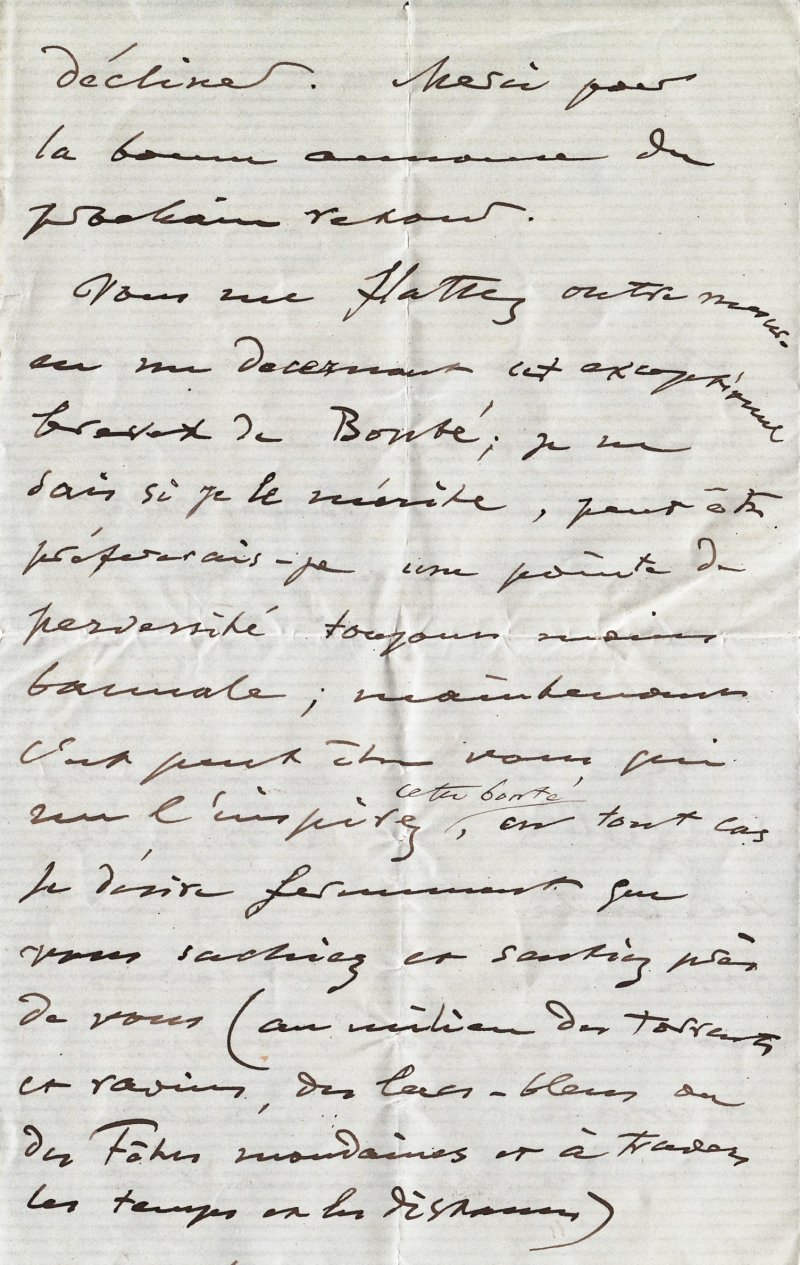 décliner. Merci pour
la bonne annonce du
prochain retour.
Vous me flattez outre mesure
en me décernant cet exceptionnel
brevet de Bonté; je ne
sais si je le mérite, peut être
préférerais-je une pointe de
perversité toujours moins
bannale; maintenant
c'est peut être vous qui
me l'inspirez, cette bonté, en tout cas
je désire fermement que
vous sachiez et sentiez près
de vous (au milieu des torrents
et ravins, des lacs-bleus ou
des Fêtes mondaines et à travers
les temps et les distances)